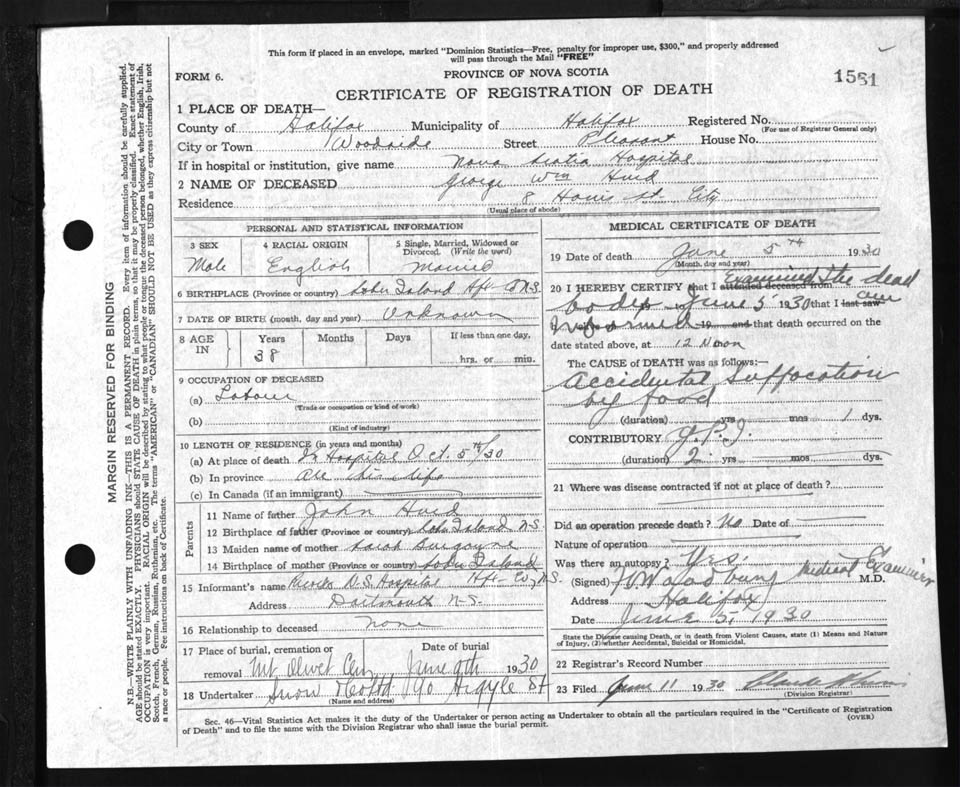 This form if placed in an envelope, marked "Dominion Statistics—Free, penalty for improper use, $300," and properly addressed
will pass through the Mail "FREE"
FORM 6.
PROVINCE OF NOVA SCOTIA
1561
CERTIFICATE OF REGISTRATION OF DEATH
1 PLACE OF DEATH—
County of Halifax Municipality of Halifax Registered No.
(For use of Registrar General only)
City or Town Woodside Street Pleasant House No.
If in hospital or institution, give name Nova Scotia Hospital
2 NAME OF DECEASED George Wm
Residence 8 St. City
(Usual place of abode)
PERSONAL AND STATISTICAL INFORMATION
3 SEX
Male
4 RACIAL ORIGIN
English
5 Single, Married, Widowed or
Divorced. (Write the word)
Married
6 BIRTHPLACE (Province or country) Island N.S.
7 DATE OF BIRTH (month, day and year) Unknown
8 AGE IN Years Months Days If less than one day.
38 hrs. or min.
9 OCCUPATION OF DECEASED
(a) Labour
(Trade or occupation or kind of work)
(b)
(Kind of industry)
10 LENGTH OF RESIDENCE (in years and months)
(a) At place of death In Hospital Oct. 5th/30
(b) In province All his life
(c) In Canada (if an immigrant)
Parents
11 Name of father John
12 Birthplace of father (Province or country) Island N.S.
13 Maiden name of mother Sarah Burgoyne
14 Birthplace of mother (Province or country) Island
15 Informant's name Records N.S. Hospital Hfx Co, N.S.
Address Dartmouth N.S.
16 Relationship to deceased none
17 Place of burial, cremation or removal Mt Olivet Cem
Date of burial June 9th 1930
18 Undertaker Snow & Co Ltd 90 Argyle St
(Name and address)
MEDICAL CERTIFICATE OF DEATH
19 Date of death June 5th 1930
(Month, day and year)
20 I HEREBY CERTIFY that I attended deceased from Examined the dead
body June 5 1930 that I last saw am
Informed 19 and that death occurred on the
date stated above, at 12 Noon
The CAUSE of DEATH was as follows:—
Accidental Suffocation
by food
(duration) yrs mos 1 dys.
CONTRIBUTORY G.P.I.
(duration) 2 yrs mos dys.
21 Where was disease contracted if not at place of death?
Did an operation precede death? No Date of
Nature of operation
Was there an autopsy? Yes.
(Signed) Woodbury Medical Examiner M.D.
Address Halifax
Date June 5, 1930
State the Disease causing Death, or in death from Violent Causes, state (1) Means and Nature
of Injury, (2) whether Accidental, Suicidal or Homicidal.
22 Registrar's Record Number
23 Filed June 11 1930
(Division Registrar)
Sec. 46—Vital Statistics Act makes it the duty of the Undertaker or person acting as Undertaker to obtain all the particulars required in the "Certificate of Registration
of Death" and to file the same with the Division Registrar who shall issue the burial permit.
(OVER)
MARGIN RESERVED FOR BINDING
N.B.—WRITE PLAINLY WITH UNFADING INK—THIS IS A PERMANENT RECORD. Every item of information should be carefully supplied.
AGE should be stated EXACTLY. PHYSICIANS should STATE CAUSE OF DEATH in plain terms, so that it may be properly classified. Exact statement of
OCCUPATION is very important. RACIAL ORIGIN will be described by stating to what people or tongue the deceased person belonged, whether English, Irish,
Scotch, French, German, Russian, Ruthenian, etc. The terms "AMERICAN" or "CANADIAN" SHOULD NOT BE USED as they express citizenship but not
a race or people. Fee instructions on back of Certificate.